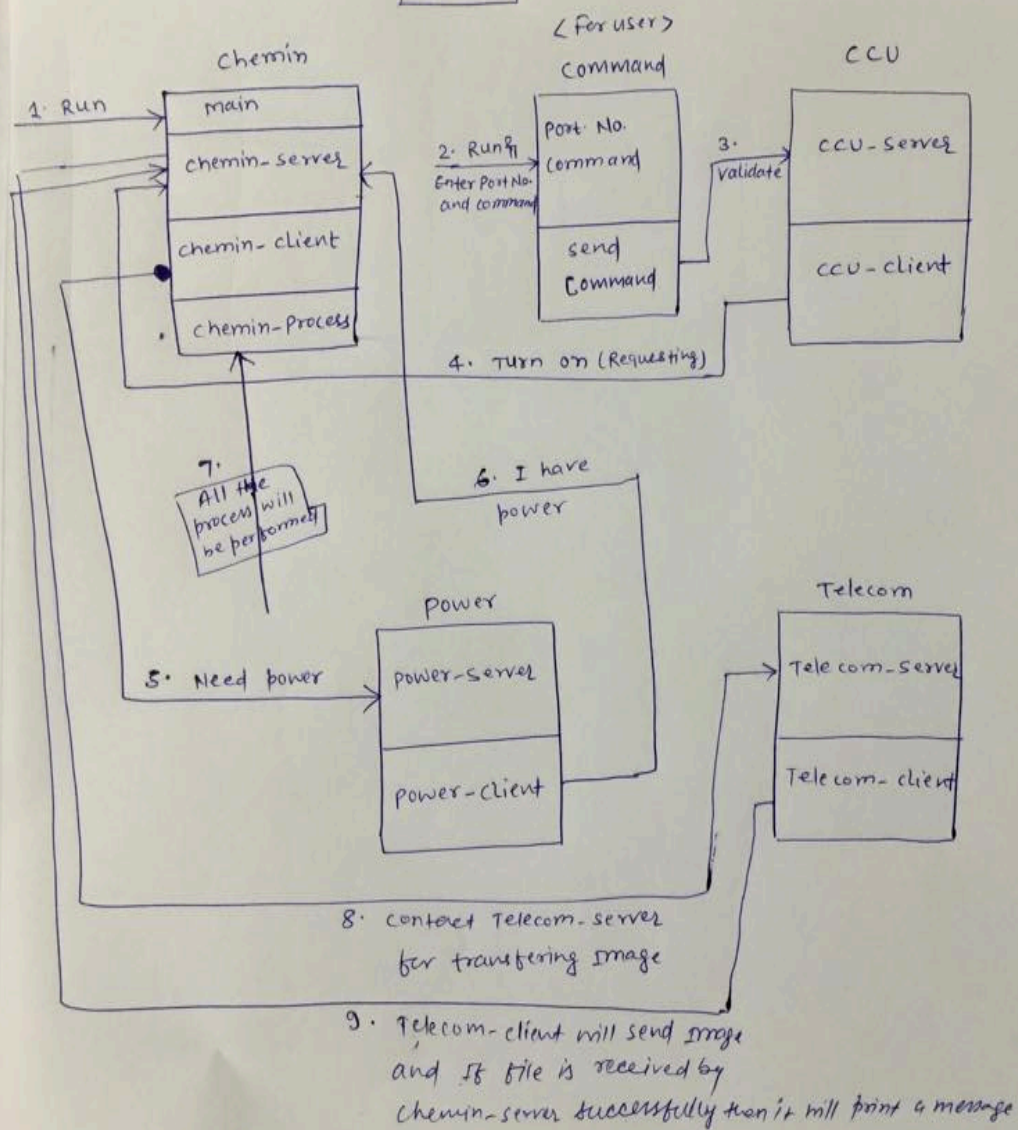 <For user>
Chemin
Command
CCU
1. Run
main
chemin-server
chemin-client
chemin-process
2. Run &
Enter Port No.
and command
Port. No.
command
send
Command
3.
validate
CCU-server
CCU-client
4. Turn on (Requesting)
7.
All the
process will
be performed
6. I have
power
5. Need power
power
power-server
power-client
Telecom
Telecom-server
Telecom-client
8. contact Telecom-server
for transfering Image
9. Telecom-client will send Image
and If file is received by
chemin-server successfully then it will print a message